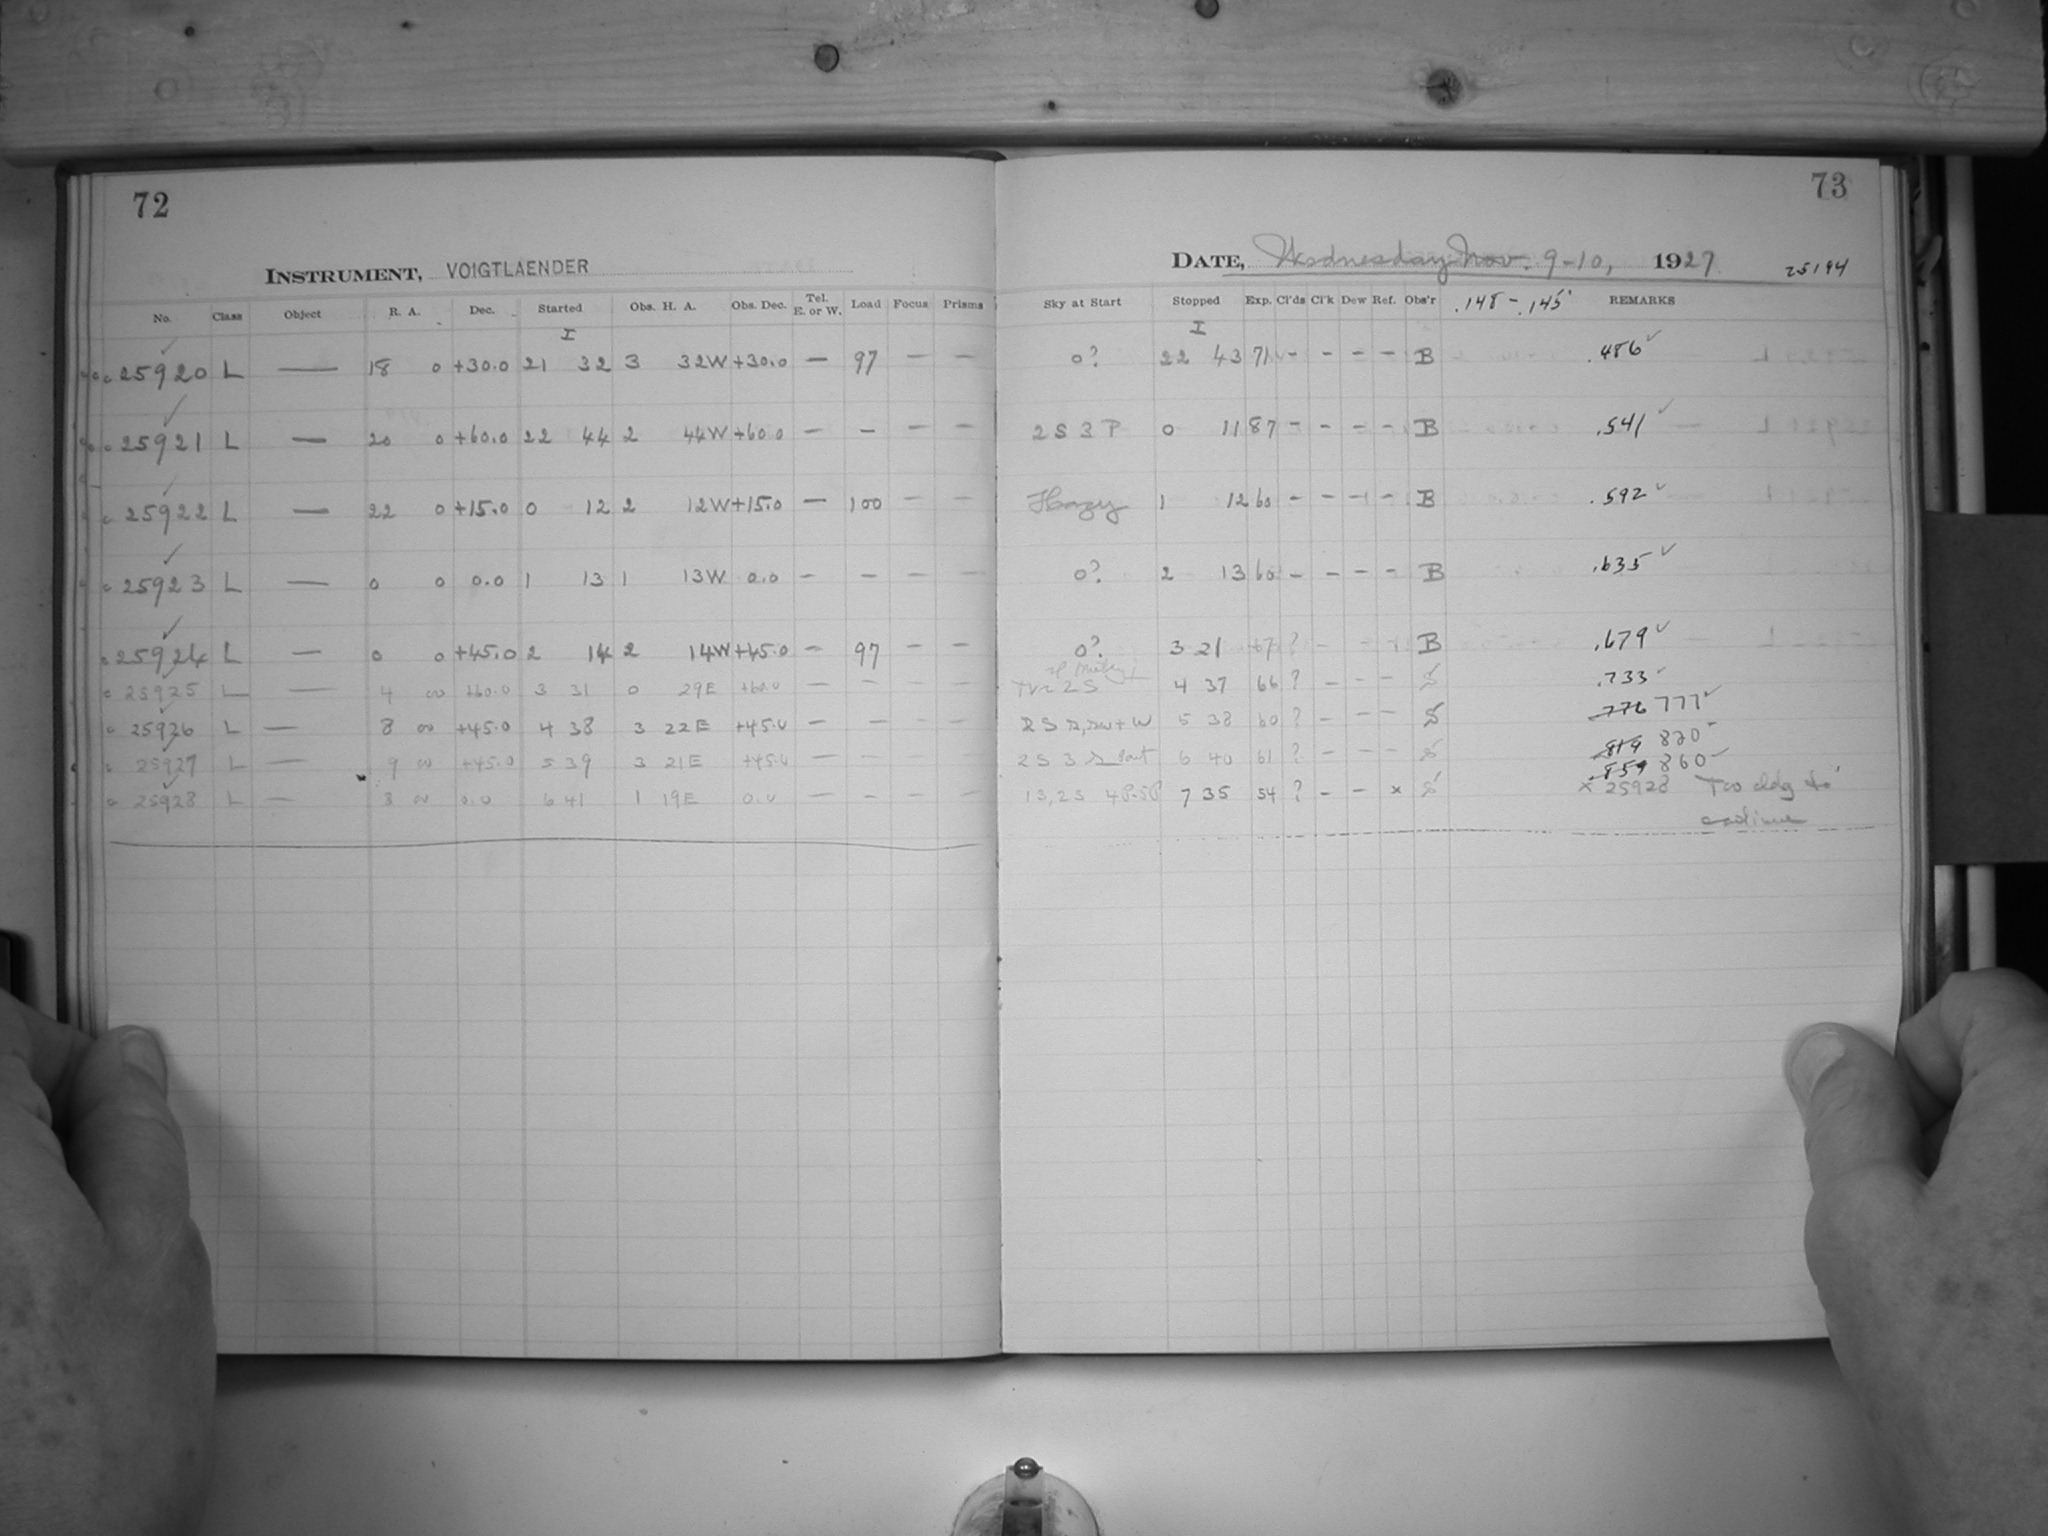 72
INSTRUMENT, VOIGTLAENDER
No. Class Object R. A. Dec. Started Obs. H. A. Obs. Dec. Tel. E. or W. Load Focus Prisms
I
25920 L — 18 0 +30.0 21 32 3 32W +30.0 — 97 — —
25921 L — 20 0 +60.0 22 44 2 44W +60.0 — — — —
25922 L — 22 0 +15.0 0 12 2 12W +15.0 — 100 — —
25923 L — 0 0 0.0 1 13 1 13W 0.0 — — — —
25924 L — 0 0 +45.0 2 14 2 14W +45.0 — 97 — —
25925 L — 4 00 +60.0 3 31 0 29E +60.0 — — — —
25926 L — 8 00 +45.0 4 38 3 22E +45.0 — — — —
25927 L — 9 00 +45.0 5 39 3 21E +45.0 — — — —
25928 L — 8 00 0.0 6 41 1 19E 0.0 — — — —
73
DATE, Wednesday Nov. 9-10, 1927
25194
Sky at Start Stopped Exp. Cl'ds Cl'k Dew Ref. Obs'r .148 - .145 REMARKS
I
0? 22 43 71 - - - - B .486
2 S 3 P 0 11 87 - - - - B .541
Hazy 1 12 60 - - - - B .592
0? 2 13 60 - - - - B .635
0? 3 21 67 ? - - - B .679
2S 4 37 66 ? - - - S .733
2 S 5 38 60 ? - - - S .776 777
2 S 3 6 40 61 ? - - - S .819 820
.859 860
1S, 2S 4P-5P 7 35 54 ? - - x S x 25928 Too cldy to
continue